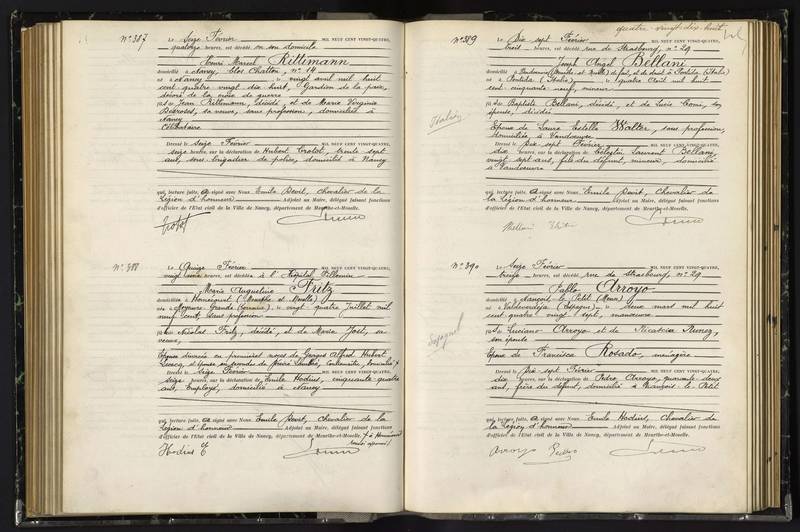 N° 387
Le Seize Février MIL NEUF CENT VINGT-QUATRE,
quatorze heures, est décédé en son domicile
Henri Marcel Rittimann
domicilié à Nancy, Clos Chatton, n° 14
né à Nancy le vingt avril mil huit
cent quatre vingt dix huit, Gardien de la paix,
décoré de la croix de guerre
fils de Jean Rittimann, décédé, et de Marie Virginie
sa veuve, sans profession, domiciliée à
Nancy
Célibataire
Dressé le Seize Février MIL NEUF CENT VINGT-QUATRE,
seize heures, sur la déclaration de Hubert Trotot, trente sept
ans, sous-brigadier de police, domicilié à Nancy
qui, lecture faite, a signé avec Nous, Emile Devit, Chevalier de la
Légion d'honneur Adjoint au Maire, délégué faisant fonctions
d'officier de l'Etat civil de la Ville de Nancy, département de Meurthe-et-Moselle.
Trotot
N° 388
Le Quinze Février MIL NEUF CENT VINGT-QUATRE,
vingt heures, est décédée à l'Hôpital Villemin
Marie Augustine Fritz
domiciliée à Homécourt (Meurthe et Moselle)
née à Moyeuvre Grande (Lorraine), le vingt quatre Juillet mil
neuf cent, sans profession
fille de Nicolas Fritz, décédé, et de Marie Jost, sa
veuve,
Epouse divorcée en premières noces de Georges Alfred Hubert
et épouse en secondes de
Dressé le Seize Février MIL NEUF CENT VINGT-QUATRE,
seize heures, sur la déclaration de Emile Hodius, cinquante quatre
ans, Employé, domicilié à Nancy
qui, lecture faite, a signé avec Nous, Emile Devit, Chevalier de la
Légion d'honneur Adjoint au Maire, délégué faisant fonctions
d'officier de l'Etat civil de la Ville de Nancy, département de Meurthe-et-Moselle. à Homécourt
Hodius E
quatre-vingt-dix-huit
N° 389
Le Dix sept Février MIL NEUF CENT VINGT-QUATRE,
trois heures, est décédé rue de Strasbourg, n° 29
Joseph Angel Bellani
domicilié à Vandoeuvre (Meurthe et Moselle) de fait, et de droit à (Italie)
né à (Italie) le quatre Août mil huit
cent cinquante neuf, mineur
fils de Baptiste Bellani, décédé, et de Lucie son
épouse, décédée
Epoux de Laure Estelle Walter, sans profession,
domiciliée à Vandoeuvre
Dressé le Dix sept Février MIL NEUF CENT VINGT-QUATRE,
dix heures, sur la déclaration de Célestin Laurent Bellani,
vingt sept ans, fils du défunt, mineur, domicilié
à Vandoeuvre
qui, lecture faite, a signé avec Nous, Emile Devit, Chevalier de
la Légion d'honneur Adjoint au Maire, délégué faisant fonctions
d'officier de l'Etat civil de la Ville de Nancy, département de Meurthe-et-Moselle.
Bellani
N° 390
Le Seize Février MIL NEUF CENT VINGT-QUATRE,
treize heures, est décédé rue de Strasbourg, n° 29
Pablo Arroyo
domicilié à Nançois-le-Petit (Meuse)
né à Valdaverdeja (Espagne) le deux mars mil huit
cent quatre vingt sept, manoeuvre
fils de Luciano Arroyo et de Nunez,
son épouse
Epoux de Francisca Rosado, ménagère
Dressé le Dix sept Février MIL NEUF CENT VINGT-QUATRE,
dix heures, sur la déclaration de Pedro Arroyo, quarante deux
ans, frère du défunt, domicilié à Nançois-le-Petit
qui, lecture faite, a signé avec Nous, Emile Hodius, Chevalier de
la Légion d'honneur Adjoint au Maire, délégué faisant fonctions
d'officier de l'Etat civil de la Ville de Nancy, département de Meurthe-et-Moselle.
Arroyo Pedro
Italien
Espagnol